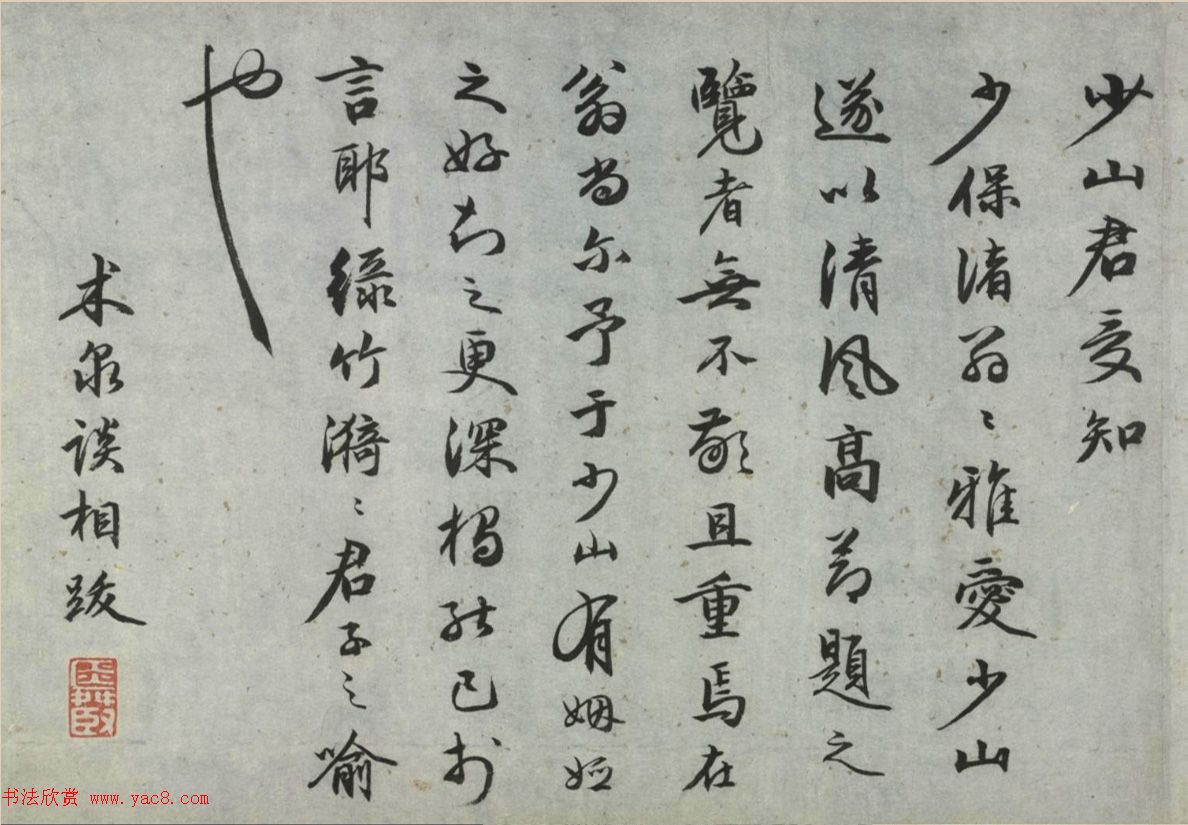 少山君受知
少保渚翁〻雅愛少山
遂以清風高節題之
覽者無不敬且重焉在
翁尚尔予于少山有姻婭
之好知之更深楬能已於
言耶綠竹漪〻君子之喻
也
木泉談相跋
书法欣赏 www.yac8.com